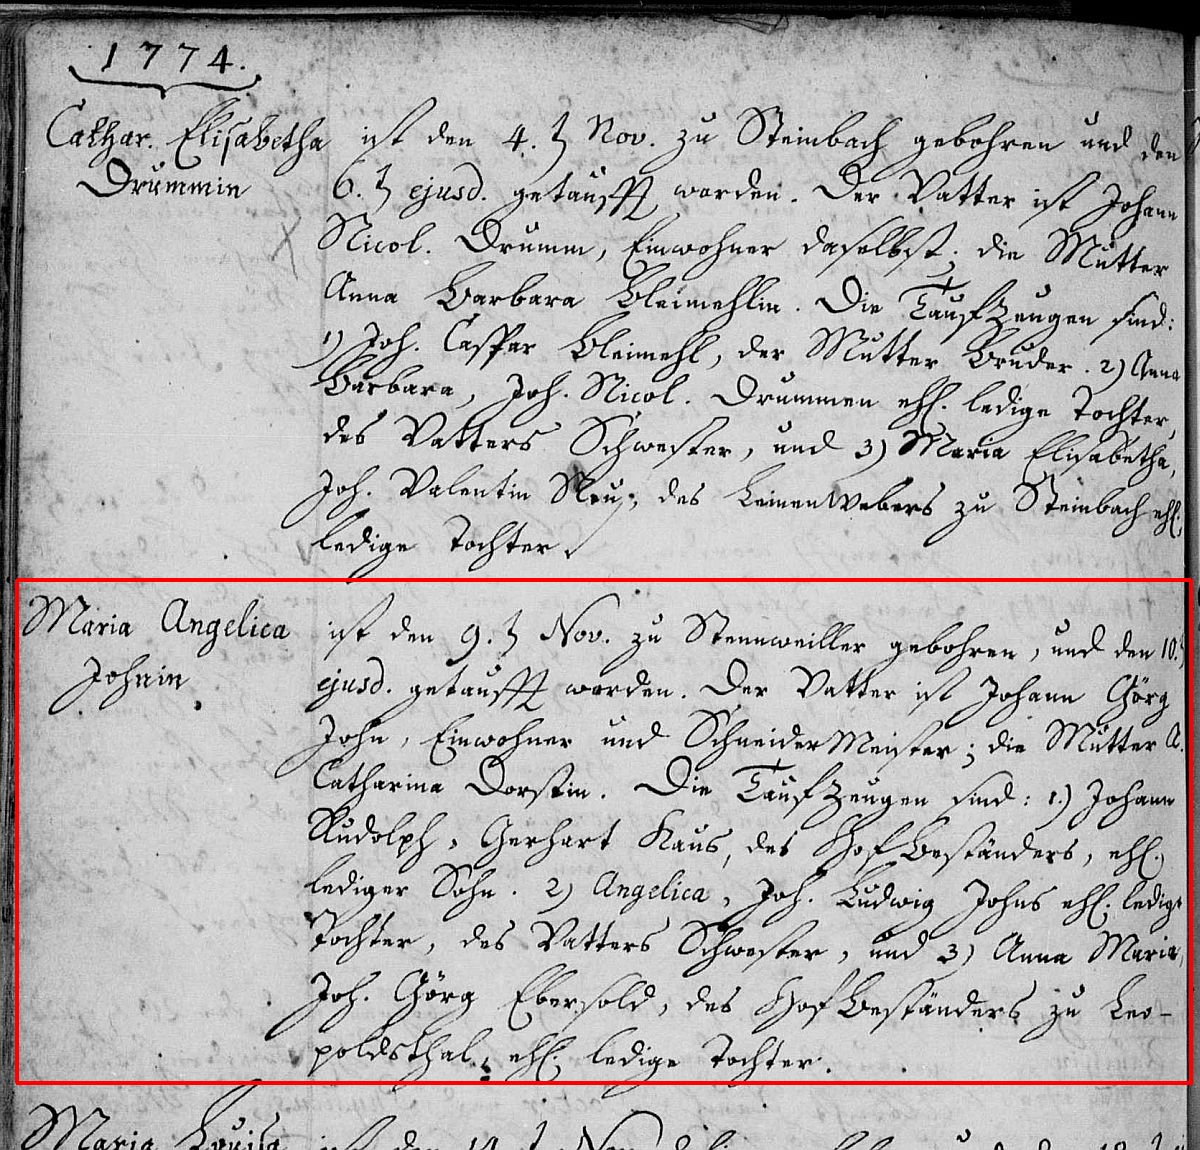 1774.
Cathar. Elisabetha ist den 4.ten Nov. zu Steinbach gebohren und den
Drummin 6.ten ejusd. getaufft worden. Der Vatter ist Johann
Nicol. Drumm, Einwohner daselbst; die Mutter
Anna Barbara Bleimehlin. Die TaufZeugen sind:
1) Joh. Caspar Bleimehl, der Mutter Bruder. 2) Anna
Barbara, Joh. Nicol. Drummen ehl. ledige Tochter,
des Vatters Schwester, und 3) Maria Elisabetha,
Joh. Valentin Neu, des LeinenWebers zu Steinbach ehl.
ledige Tochter.
Maria Angelica ist den 9.ten Nov. zu Stennweiller gebohren, und den 10.ten
Johnin ejusd. getaufft worden. Der Vatter ist Johann Görg
John, Einwohner und SchneiderMeister; die Mutter A.
Catharina Dorstin. Die TaufZeugen sind: 1.) Johann
Rudolph, Gerhart Kaus, des HofBeständers, ehl.
lediger Sohn. 2) Angelica, Joh. Ludwig Johns ehl. ledige
Tochter, des Vatters Schwester, und 3) Anna Maria,
Joh. Görg Ebersold, des HofBeständers zu Leo-
poldsthal, ehl. ledige Tochter.
Maria Louisa ist den